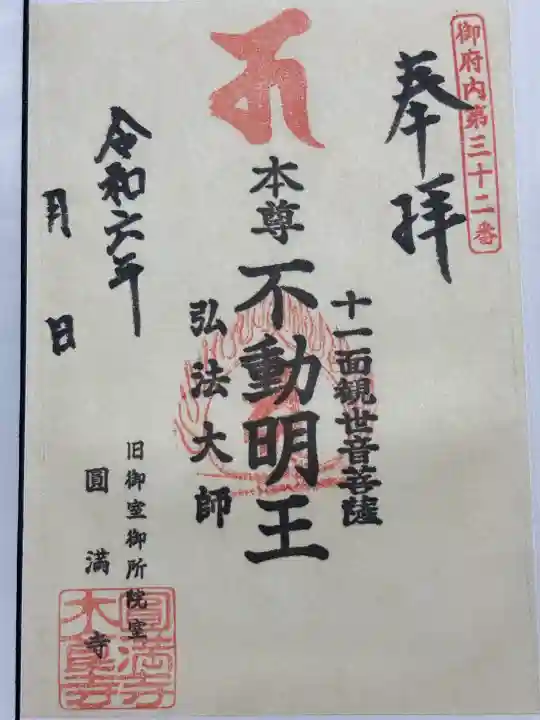 御府内第三十二番
奉拝
十一面観世音菩薩
本尊
不動明王
弘法大師
令和六年
月 日
旧御室御所院室
圓満寺
圓満寺